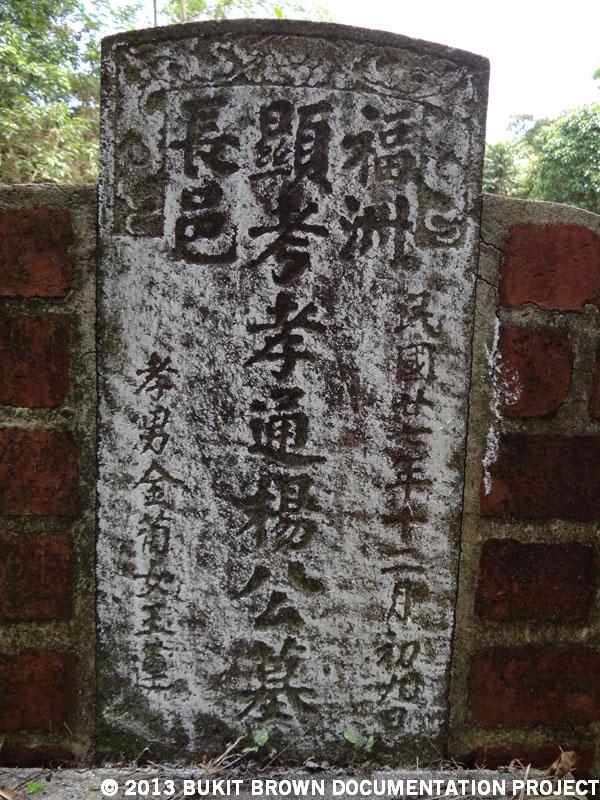 福洲
民國廿年十二月初日
顯考孝通楊公墓
長邑
孝男金菊女玉蓮
© 2013 BUKIT BROWN DOCUMENTATION PROJECT